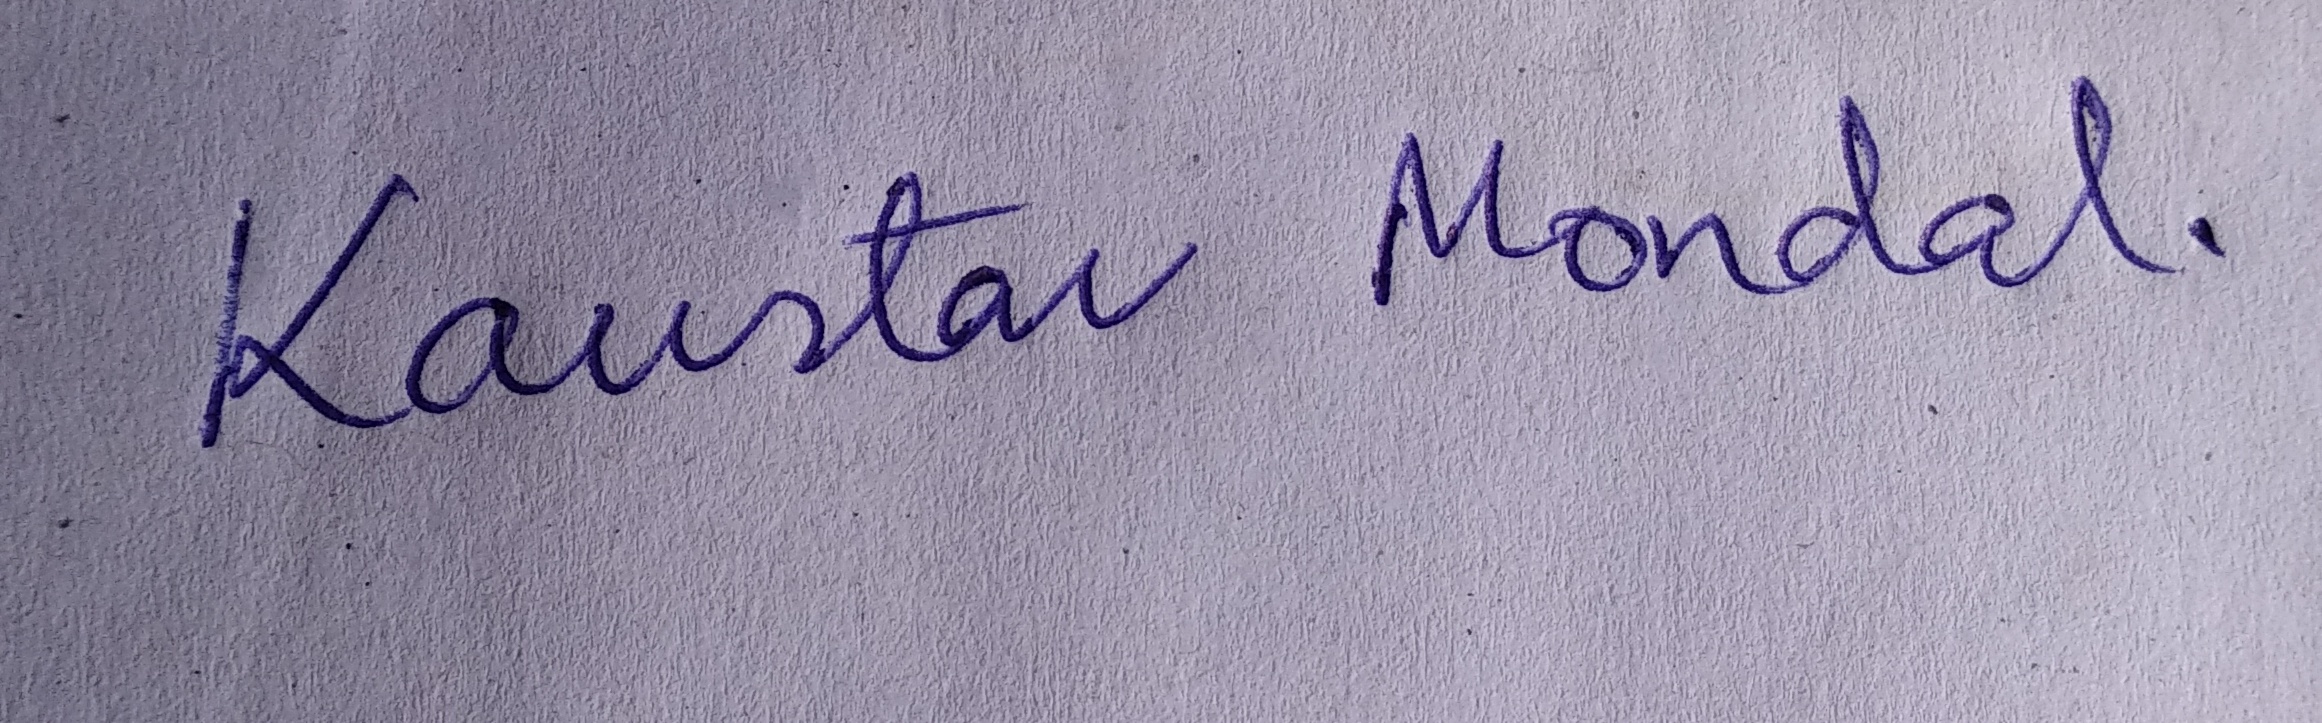 Kaustav Mondal.